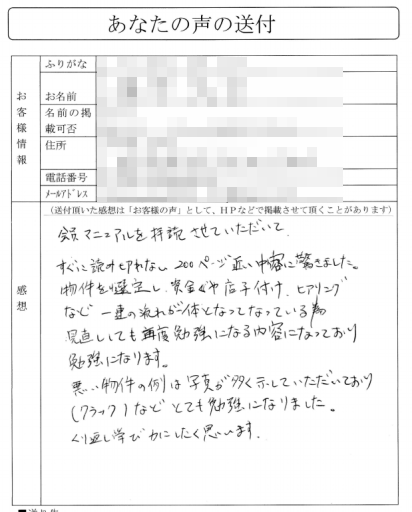 あなたの声の送付
お客様情報
ふりがな
お名前
名前の掲
載可否
住所
電話番号
メールアドレス
(送付頂いた感想は「お客様の声」として、HPなどで掲載させて頂くことがあります)
感想
会員マニュアルを拝読させていただいて、
すぐに読み切れない200ページ近い内容に驚きました。
物件を選定し、資金ぐや店子付け、ヒアリング
など一連の流れが一体となっなっている為
見直ししても再度勉強になる内容になっており
勉強になります。
悪い物件の例は写真が多く示していただいており
(クラック)などとても勉強になりました。
くり返し学び力にしたく思います。